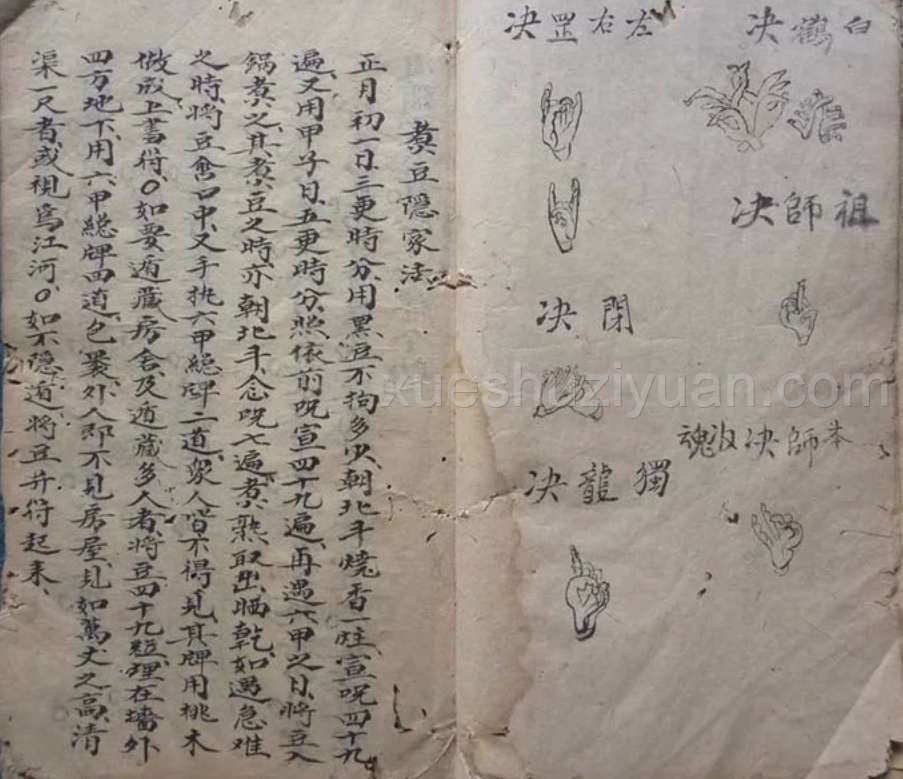 白鶴决
左右罡决
祖師决
閉决
本師决收魂
獨龍决
煑豆隱家法
正月初一日、三更時分、用黑豆不拘多少、朝北斗燒香一炷、宣呪四十九
遍、又用甲子日、五更時分、照依前呪宣四十九遍、再遇六甲之日、將豆入
鍋煑之、其煑豆之時、亦朝北斗、念呪七遍、煑熟、取出晒乾、如遇急难
之時、將豆含口中、又手执六甲総牌二道、衆人皆不得見、其牌用桃木
做成、上書符、〇如要遁藏房舍、及遁藏多人者、將豆四十九粒、埋在墻外
四方地下、用六甲総牌四道、包褁、外人即不見房屋、見如萬丈之高、清
渠一尺者、或視為江河、〇如不隱遁、將豆并符起来、
xueshuziyuan.com